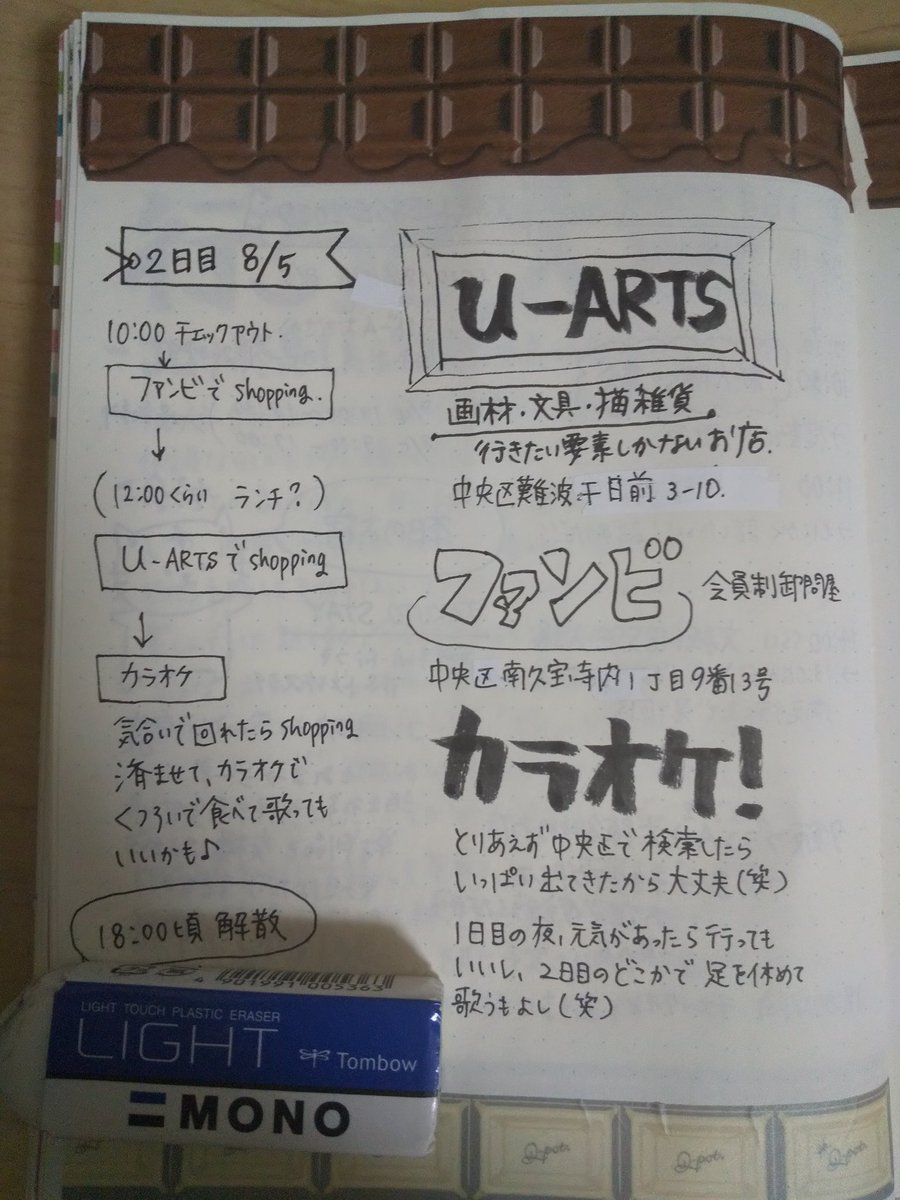 2日目 8/5
10:00 チェックアウト.
↓
ファンビで shopping.
↓
(12:00くらい ランチ?)
U-ARTSで shopping
↓
カラオケ
気合いで回れたら shopping
済ませて、カラオケで
くつろいで食べて歌っても
いいかも♪
18:00頃 解散
U-ARTS
画材・文具・猫雑貨
行きたい要素しかないお店.
中央区難波千日前 3-10.
ファンビ 会員制卸問屋
中央区南久宝寺内1丁目9番13号
カラオケ!
とりあえず中央区で検索したら
いっぱい出てきたから大丈夫(笑)
1日目の夜、元気があったら行っても
いいし、2日目のどこかで足を休めて
歌うもよし(笑)
4901991005363
LIGHT TOUCH PLASTIC ERASER
LIGHT Tombow
MONO
Q-pot.
Q-pot.
Q-pot.